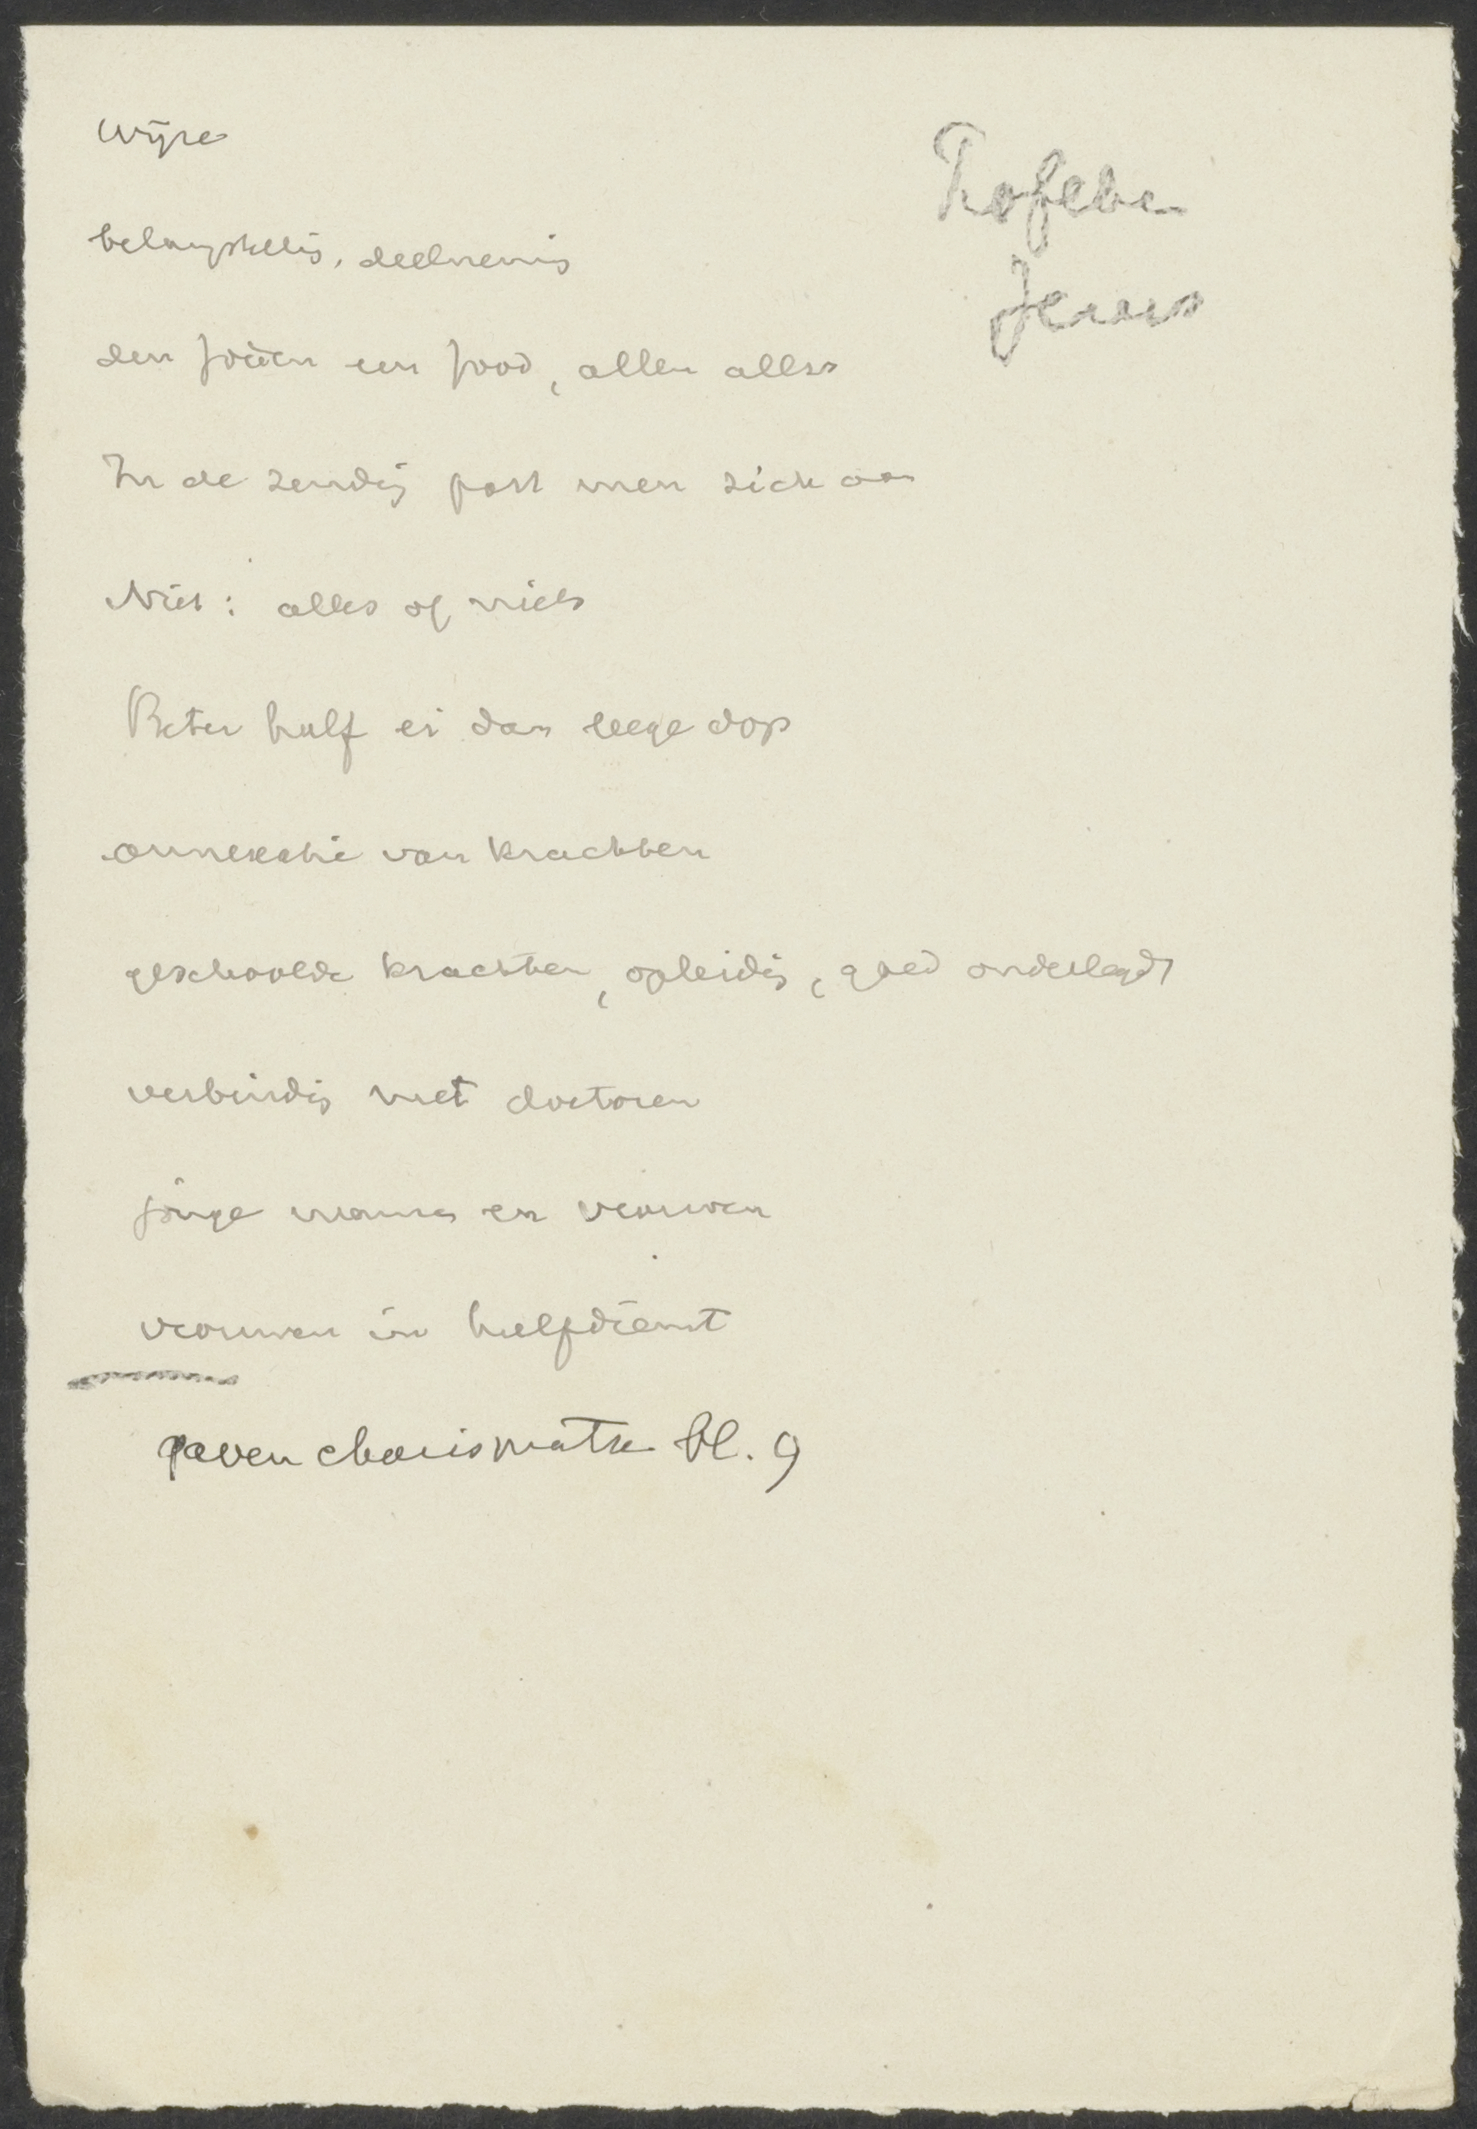 Wijze
Profeten
Jezus
belangstellig, deelnemig
den Joden een Jood, allen alles
In de zendig past men zich aan
Niet: alles of niets
Beter half ei dan leege dop
annexatie van krachten
geschoolde krachten, opleidig, goed onderlegd
verbindig met doctoren
jonge mannen en vrouwen
vrouwen in hulpdienst
gaven charismata bl. 9